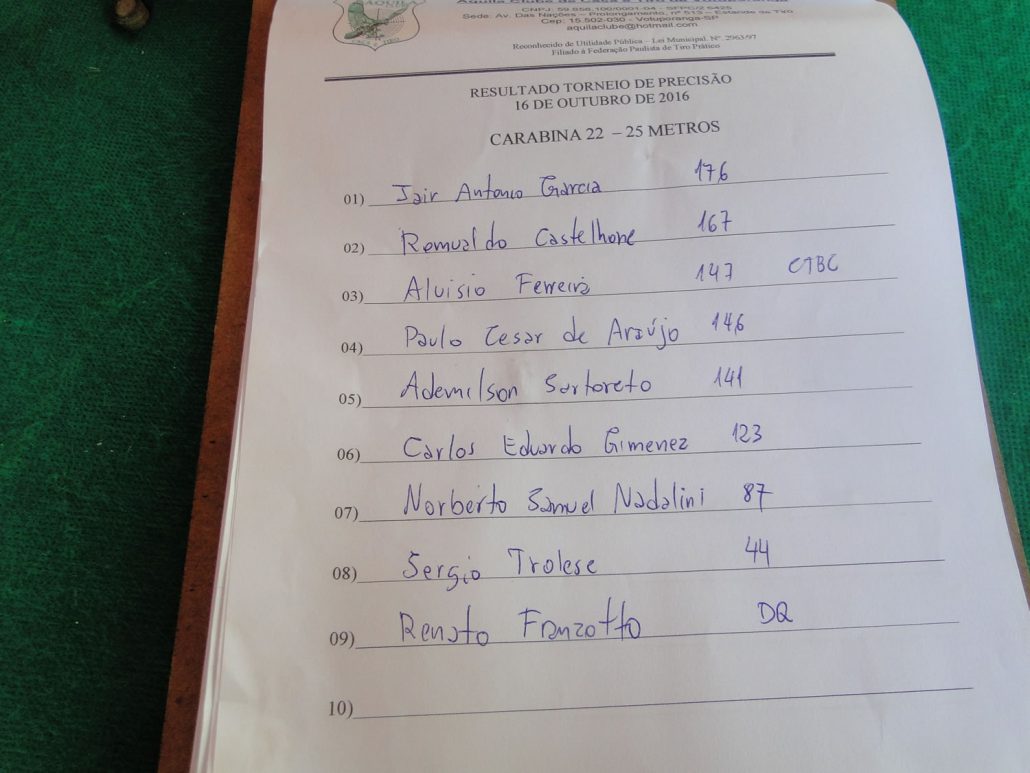 ÁQUILA
CAÇA E TIRO
Áquila Clube de Caça e Tiro de Votuporanga
CNPJ: 59.856.100/0001-04 – SFPC/2 6425
Sede: Av. Das Nações – Prolongamento, nº 515 – Estande de Tiro
Cep: 15.502-030 – Votuporanga-SP
aquilaclube@hotmail.com
Reconhecido de Utilidade Pública – Lei Municipal. Nº. 2963/97
Filiado à Federação Paulista de Tiro Prático
RESULTADO TORNEIO DE PRECISÃO
16 DE OUTUBRO DE 2016
CARABINA 22 – 25 METROS
01) Jair Antonio Garcia 176
02) Romualdo Castelhone 167
03) Aluisio Ferreira 147 CTBC
04) Paulo Cesar de Araújo 146
05) Ademilson Sartoreto 141
06) Carlos Eduardo Gimenez 123
07) Norberto Samuel Nadalini 87
08) Sergio Trolese 44
09) Renato Franzotto DQ
10)